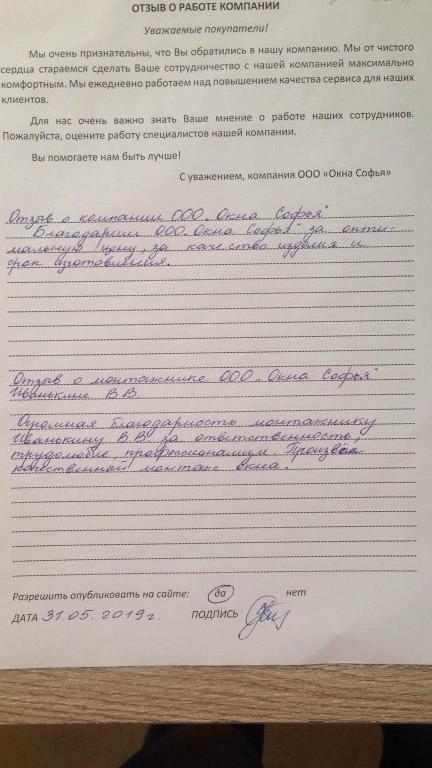 ОТЗЫВ О РАБОТЕ КОМПАНИИ
Уважаемые покупатели!
Мы очень признательны, что Вы обратились в нашу компанию. Мы от чистого
сердца стараемся сделать Ваше сотрудничество с нашей компанией максимально
комфортным. Мы ежедневно работаем над повышением качества сервиса для наших
клиентов.
Для нас очень важно знать Ваше мнение о работе наших сотрудников.
Пожалуйста, оцените работу специалистов нашей компании.
Вы помогаете нам быть лучше!
С уважением, компания ООО «Окна Софья»
Отзыв о компании ООО „Окна Софья"
Благодарим ООО „Окна Софья" за опти-
мальную цену, за качество изделия и
срок изготовления.
Отзыв о монтажнике ООО „Окна Софья"
Иванькине В.В.
Огромная благодарность монтажнику
Иванькину В.В. за ответственность,
трудолюбие, профессионализм. Произвёл
качественный монтаж окна.
Разрешить опубликовать на сайте: да нет
ДАТА 31.05.2019г. ПОДПИСЬ